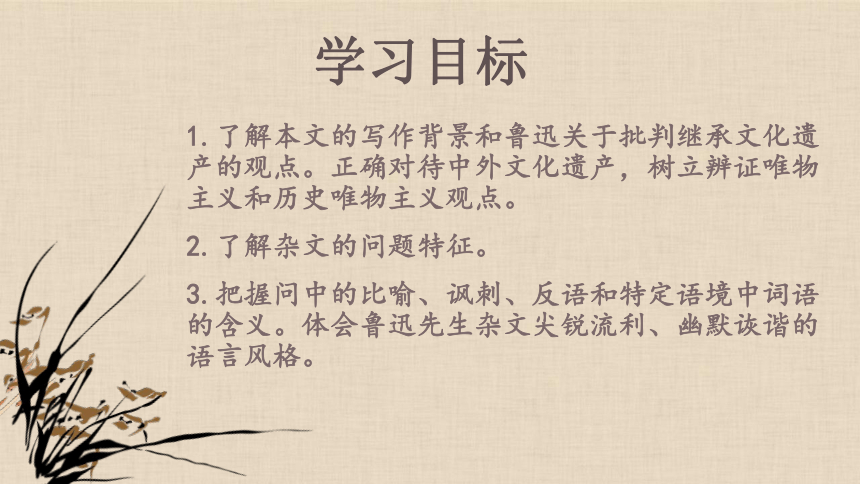 学习目标
1.了解本文的写作背景和鲁迅关于批判继承文化遗
产的观点。正确对待中外文化遗产，树立辨证唯物
主义和历史唯物主义观点。
2.了解杂文的问题特征。
3.把握问中的比喻、讽刺、反语和特定语境中词语
的含义。体会鲁迅先生杂文尖锐流利、幽默诙谐的
语言风格。